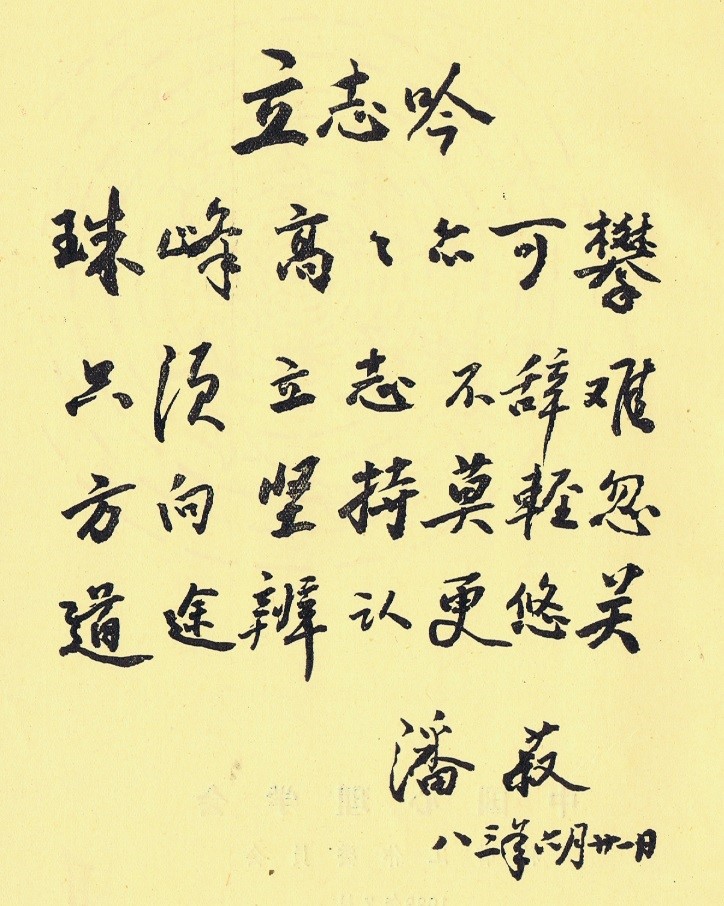 立志吟
珠峰高々亦可攀
只须立志不辞难
方向坚持莫輕忽
道途辨认更悠关
潘菽
八三年六月廿一日